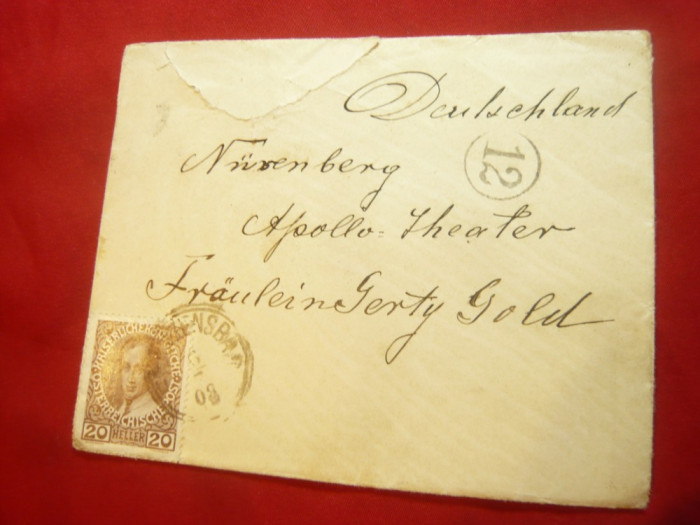 Deutschland
12
Nürenberg
Apollo-Theater
Fräulein Gerty Gold
KAISERLICHE KÖNIGLICHE ÖSTERREICHISCHE POST
20 HELLER 20
ENSBA
08